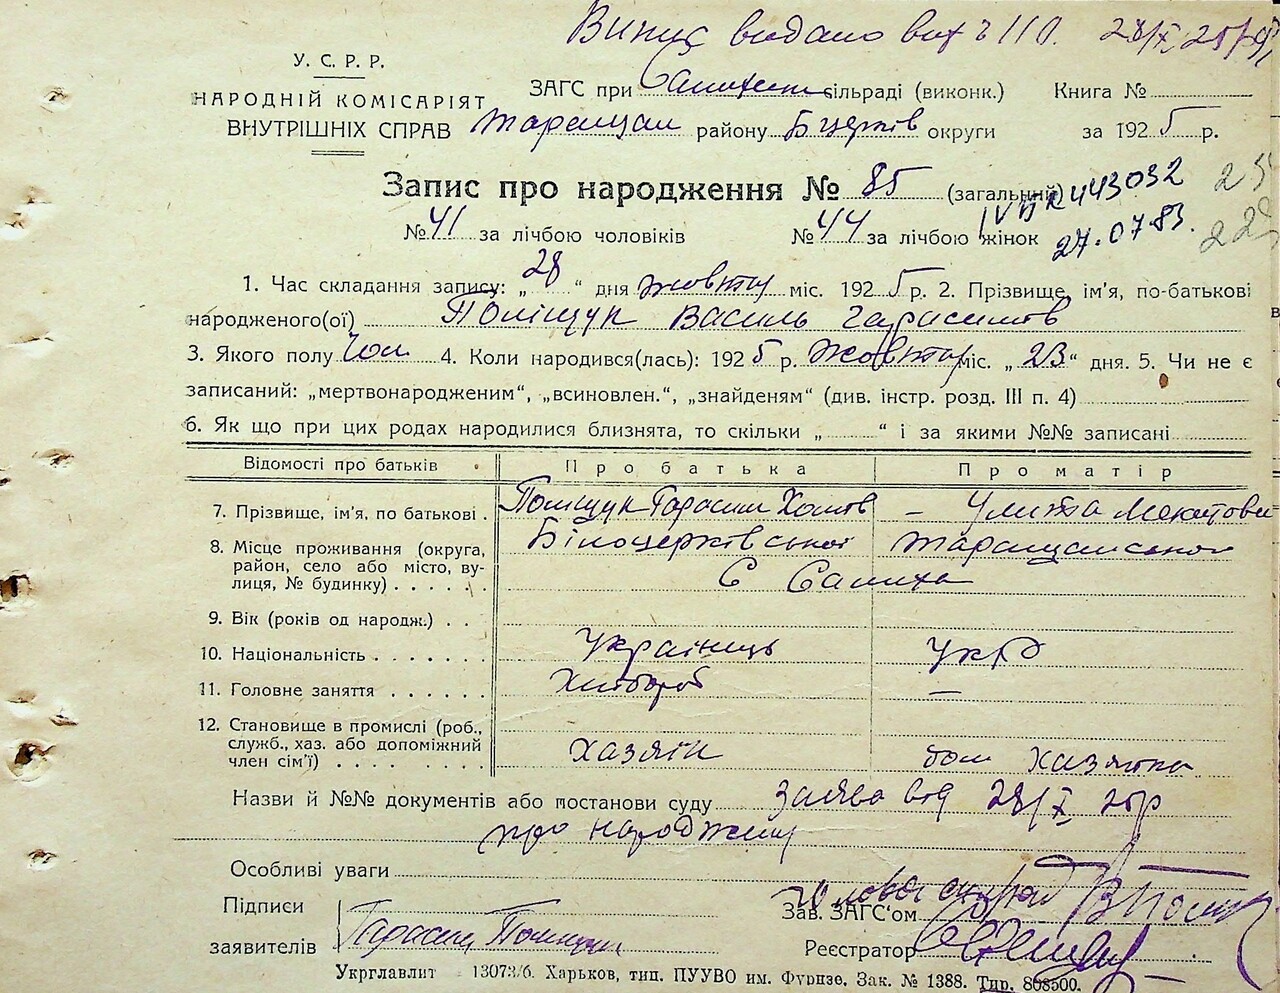 Випис видано 28/X 25
У. С. Р. Р.
НАРОДНІЙ КОМІСАРІЯТ
ВНУТРІШНІХ СПРАВ
ЗАГС при сільраді (виконк.) Книга №
Таращан району Б церків округи за 1925 р.
Запис про народження № 85 (загальний)
IV БК 443032
№ 41 за лічбою чоловіків № 44 за лічбою жінок
27.07.83.
1. Час складання запису: „28“ дня жовтня міс. 1925 р. 2. Прізвище, ім'я, по-батькові
народженого(ої) Поліщук Василь Гарасимов
3. Якого полу чол 4. Коли народився(лась): 1925 р. жовтня міс. „23“ дня. 5. Чи не є
записаний: „мертвонародженим“, „всиновлен.“, „знайденям“ (див. інстр. розд. III п. 4)
6. Як що при цих родах народилися близнята, то скільки „ “ і за якими №№ записані
Відомості про батьків Про батька Про матір
7. Прізвище, ім'я, по батькові . Поліщук Гарасим - Улита
8. Місце проживання (округа, Білоцерківської Таращанського
район, село або місто, ву- С Салиха
лиця, № будинку) . . . . .
9. Вік (років од народж.) . .
10. Національність . . . . . . Українець Укр
11. Головне заняття . . . . . . Хлібороб —
12. Становище в промислі (роб.,
служб., хаз. або допоміжний Хазяїн дом хазяйка
член сім'ї) . . . . .
Назви й №№ документів або постанови суду Заява від 28/X 25 р
про народжену
Особливі уваги
Підписи Голова сільрад
Зав. ЗАГС'ом
заявителів Гарасим Поліщук Реєстратор
Укрглавлит 13073/6. Харьков, тип. ПУУВО им. Фрунзе. Зак. № 1388. Тир. 808500.